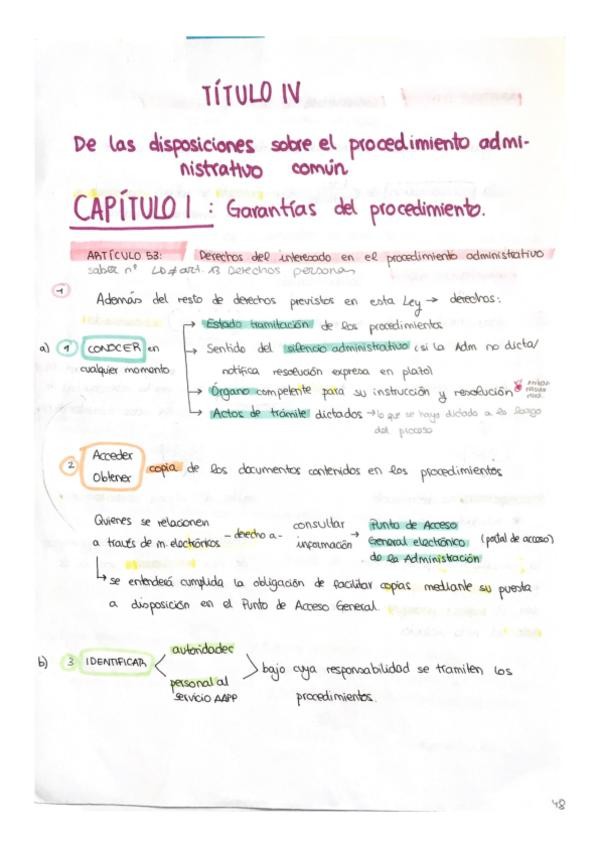 TÍTULO IV
De las disposiciones sobre el procedimiento admi-
nistrativo común
CAPÍTULO I : Garantías del procedimiento.
ARTÍCULO 53: Derechos del interesado en el procedimiento administrativo
saber nº LD ≠ art. 13 Derechos personas
1 Además del resto de derechos previstos en esta Ley → derechos:
→ Estado tramitación de los procedimientos
a) 1 CONOCER en → Sentido del silencio administrativo (si la Adm no dicta/
cualquier momento notifica resolución expresa en plazo)
→ Órgano competente para su instrucción y resolución
→ Actos de trámite dictados → lo que se haya dictado a lo largo
del proceso
2 Acceder
Obtener copia de los documentos contenidos en los procedimientos
Quienes se relacionen consultar → Punto de Acceso
a través de m. electrónicos - derecho a - información General electrónico (portal de acceso)
de la Administración
↳ se entenderá cumplida la obligación de facilitar copias mediante su puesta
a disposición en el Punto de Acceso General.
b) 3 IDENTIFICAR autoridades
bajo cuya responsabilidad se tramiten los
personal al
servicio AAPP procedimientos.
48